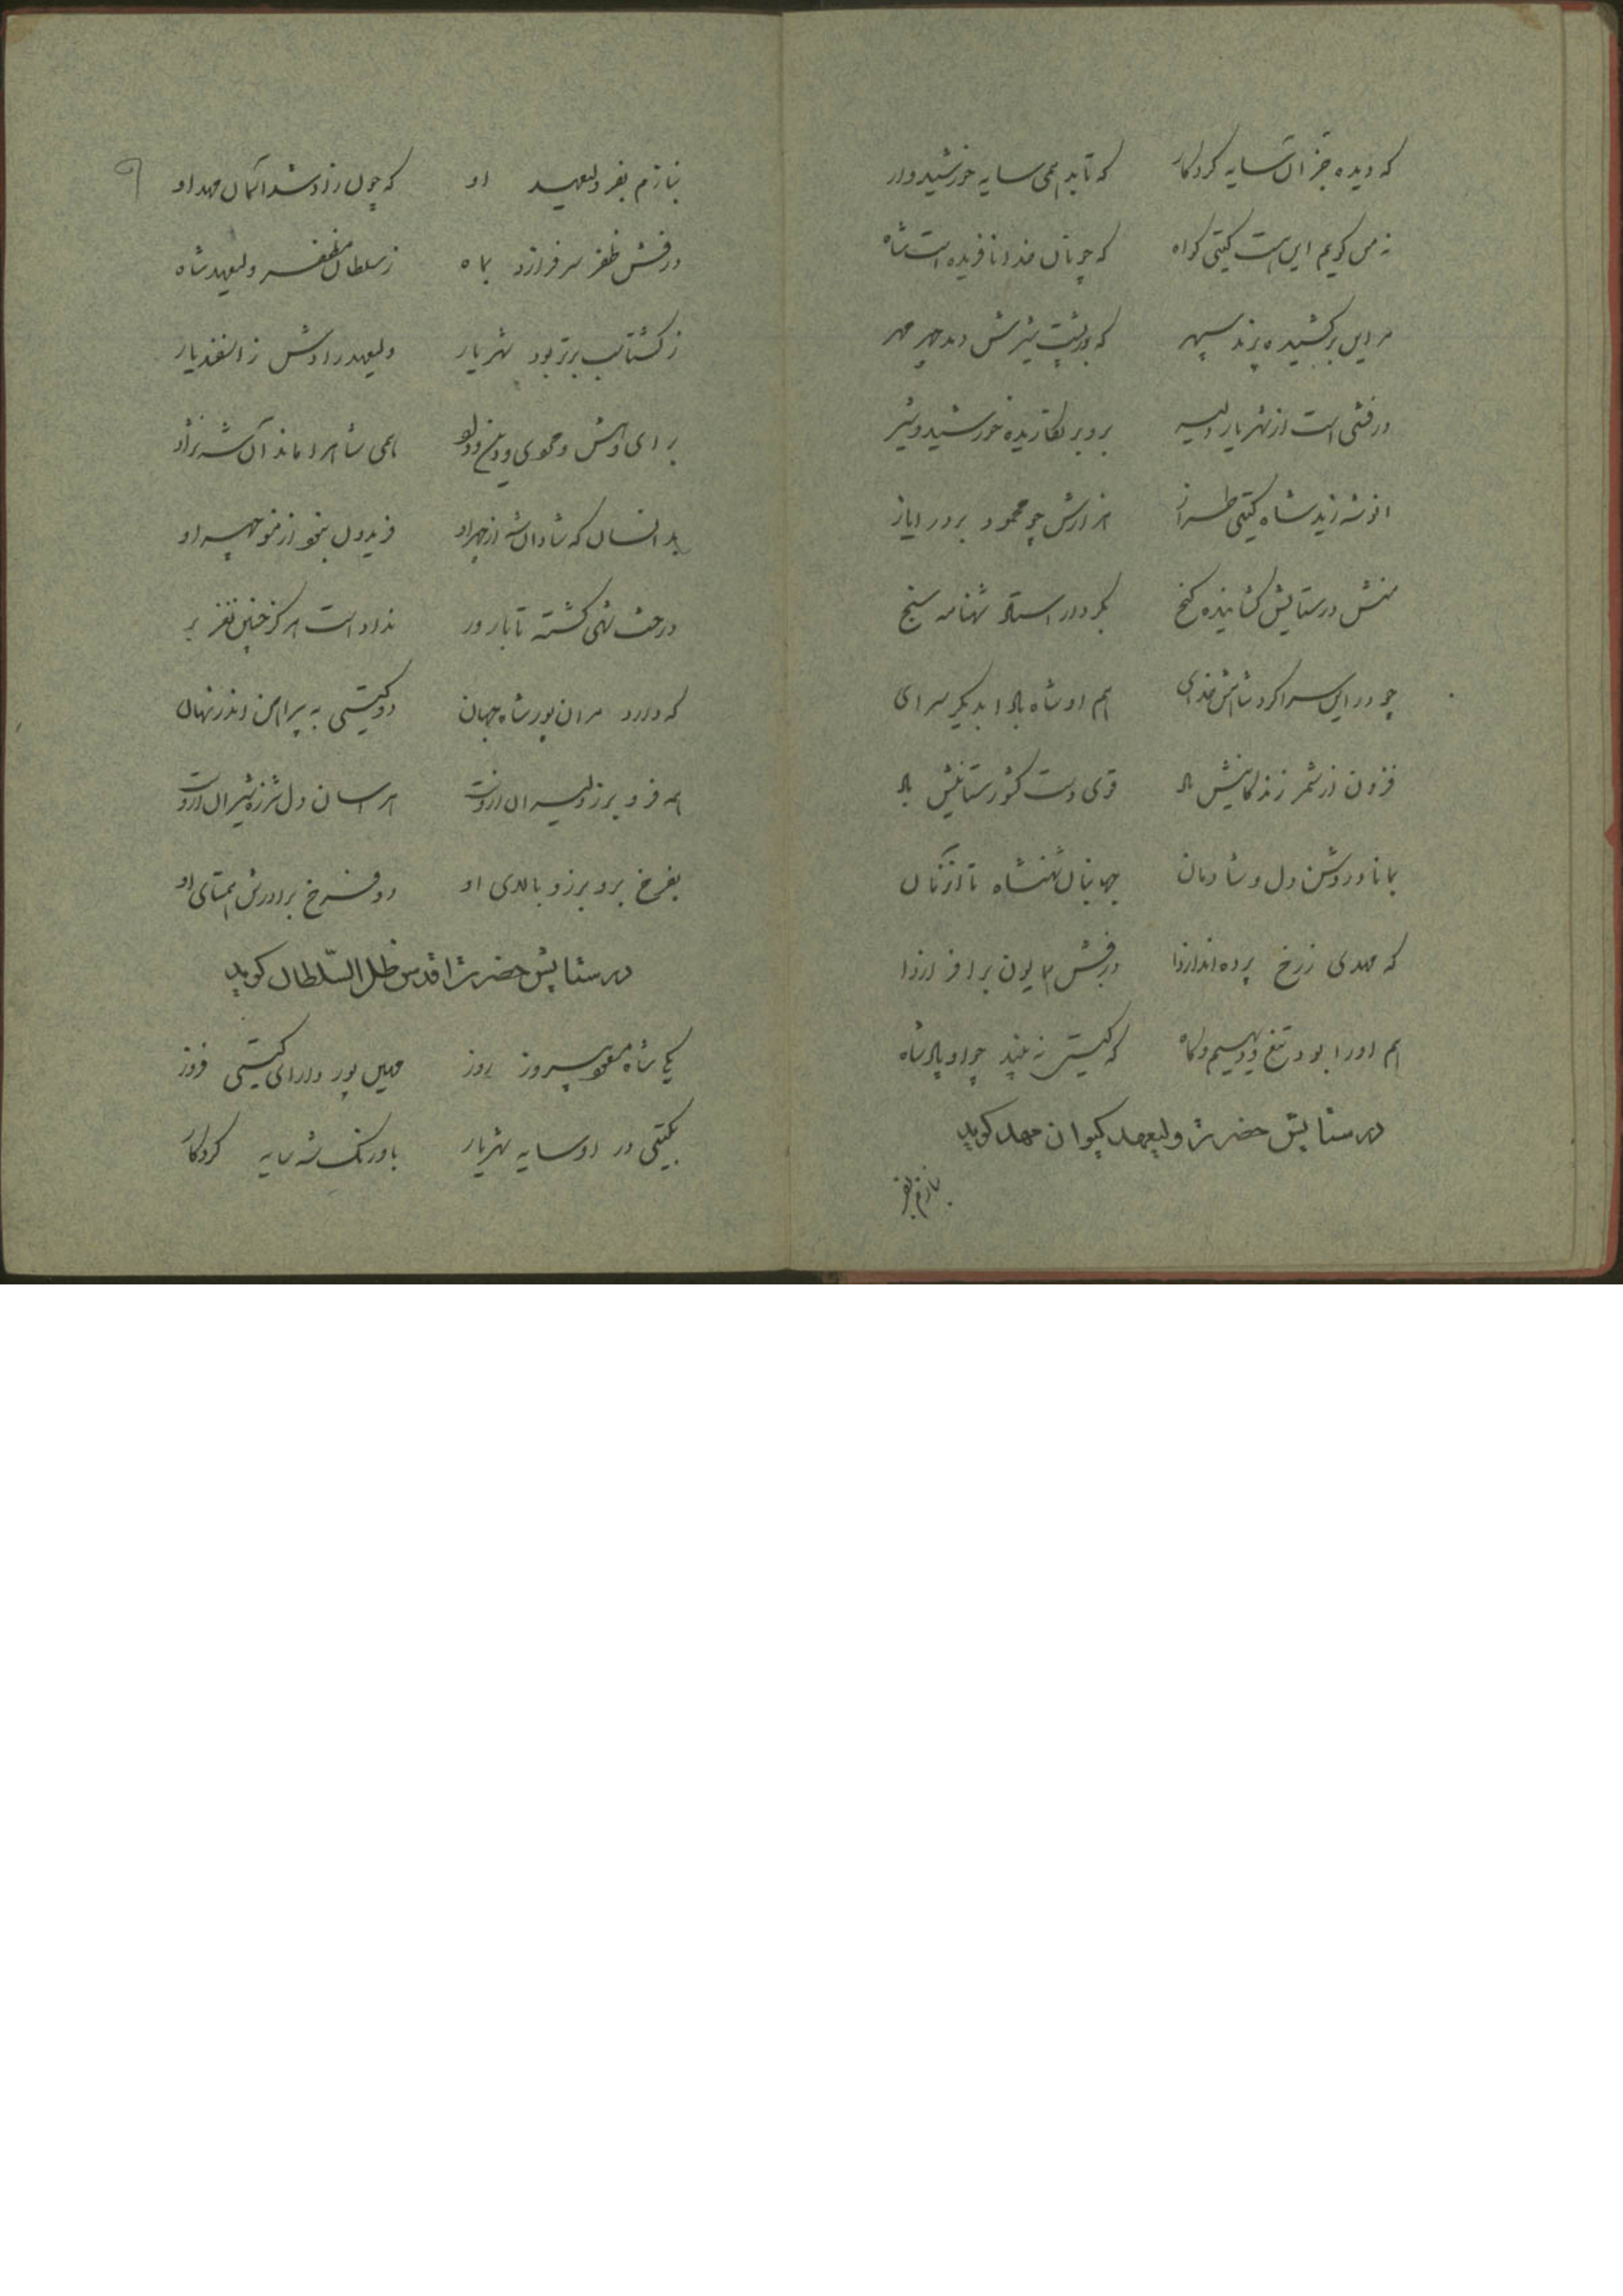 که دیده جز آن سایه کردکار که تابد همی سایه خورشیدوار
نه من کویم این است کیتی کواه که چونان خدا نافریده است شاه
مر این برکشیده پرند سپهر که بر پشت شیرش دمد چهر مهر
درفشی است از شهریار دلیر برو بر نکاریده خورشید و شیر
انوشه زید شاه کیتی طراز هزارش چو محمود بر در ایاز
منش در ستایش کشاینده کنج بکردار استاد شهنامه سنج
چو در این سرا کرد شاهش خدای هم او شاه بادا بدیکر سرای
فزون از شمر زندکانیش باد قوی دست کشورستانیش باد
بماناد روشن دل و شادمان جهانبان شهنشاه تا آن زمان
که مهدی ز رخ پرده اندازدا درفش همایون برافرازدا
هم او را بود تیغ و دیهیم و کاه که کیتی نه بیند چو او پادشاه
در ستایش حضرت ولیعهد کیوان مهد کوید
بنازم بفر
بنازم بفر ولیعهد او که چون زاد شد آسمان مهد او
درفش ظفر سرفرازد بماه ز سلطان مظفر ولیعهد شاه
ز کشتاسب برتر بود شهریار ولیعهد رادش ز اسفندیار
برای و هش و خوی و دین و داد همی شاه را ماند آن شه نژاد
بدانسان که شادان شه از چهر او فریدون نبد از منوچهر او
درخت شهی کشته تا بارور نداد است هرکز چنین نغز بر
که دارد مر آن پور شاه جهان دو کیتی به پیراهن اندر نهان
همه فر و برز دلیران در اوست هراسان دل شرزه شیران از اوست
بفرخ برو برز و بالای او دو فرخ برادرش همتای او
در ستایش حضرت اقدس ظل السلطان کوید
یکی شاه مسعود پیروز روز مهین پور دارای کیتی فروز
بکیتی در او سایه شهریار باورنک شه سایه کردکار
۹